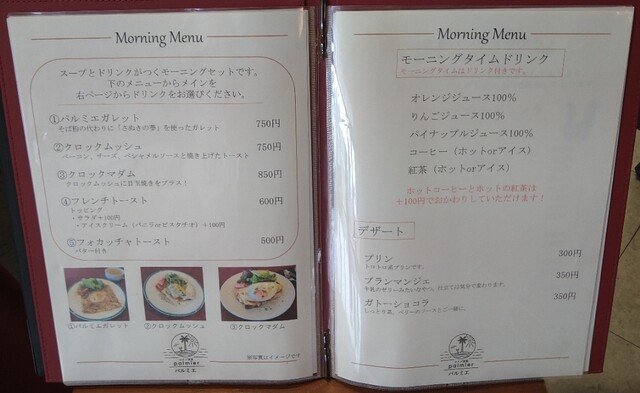 Morning Menu
スープとドリンクがつくモーニングセットです。
下のメニューからメインを
右ページからドリンクをお選びください。
①パルミエガレット 750円
そば粉の代わりに「さぬきの夢」を使ったガレット
②クロックムッシュ 750円
ベーコン、チーズ、ベシャメルソースと焼き上げたトースト
③クロックマダム 850円
クロックムッシュに目玉焼きをプラス!
④フレンチトースト 600円
トッピング
・サラダ+100円
・アイスクリーム(バニラorピスタチオ)+100円
⑤フォカッチャトースト 500円
バター付き
①パルミエガレット
②クロックムッシュ
③クロックマダム
palmier
パルミエ
※写真はイメージです
Morning Menu
モーニングタイムドリンク
モーニングタイムはドリンク付きです。
オレンジジュース100%
りんごジュース100%
パイナップルジュース100%
コーヒー(ホットorアイス)
紅茶(ホットorアイス)
ホットコーヒーとホットの紅茶は
+100円でおかわりしていただけます!
デザート
プリン 300円
ブランマンジェ 350円
ガトーショコラ 350円
しっとり系。ベリーのソースとご一緒に。
palmier
パルミエ